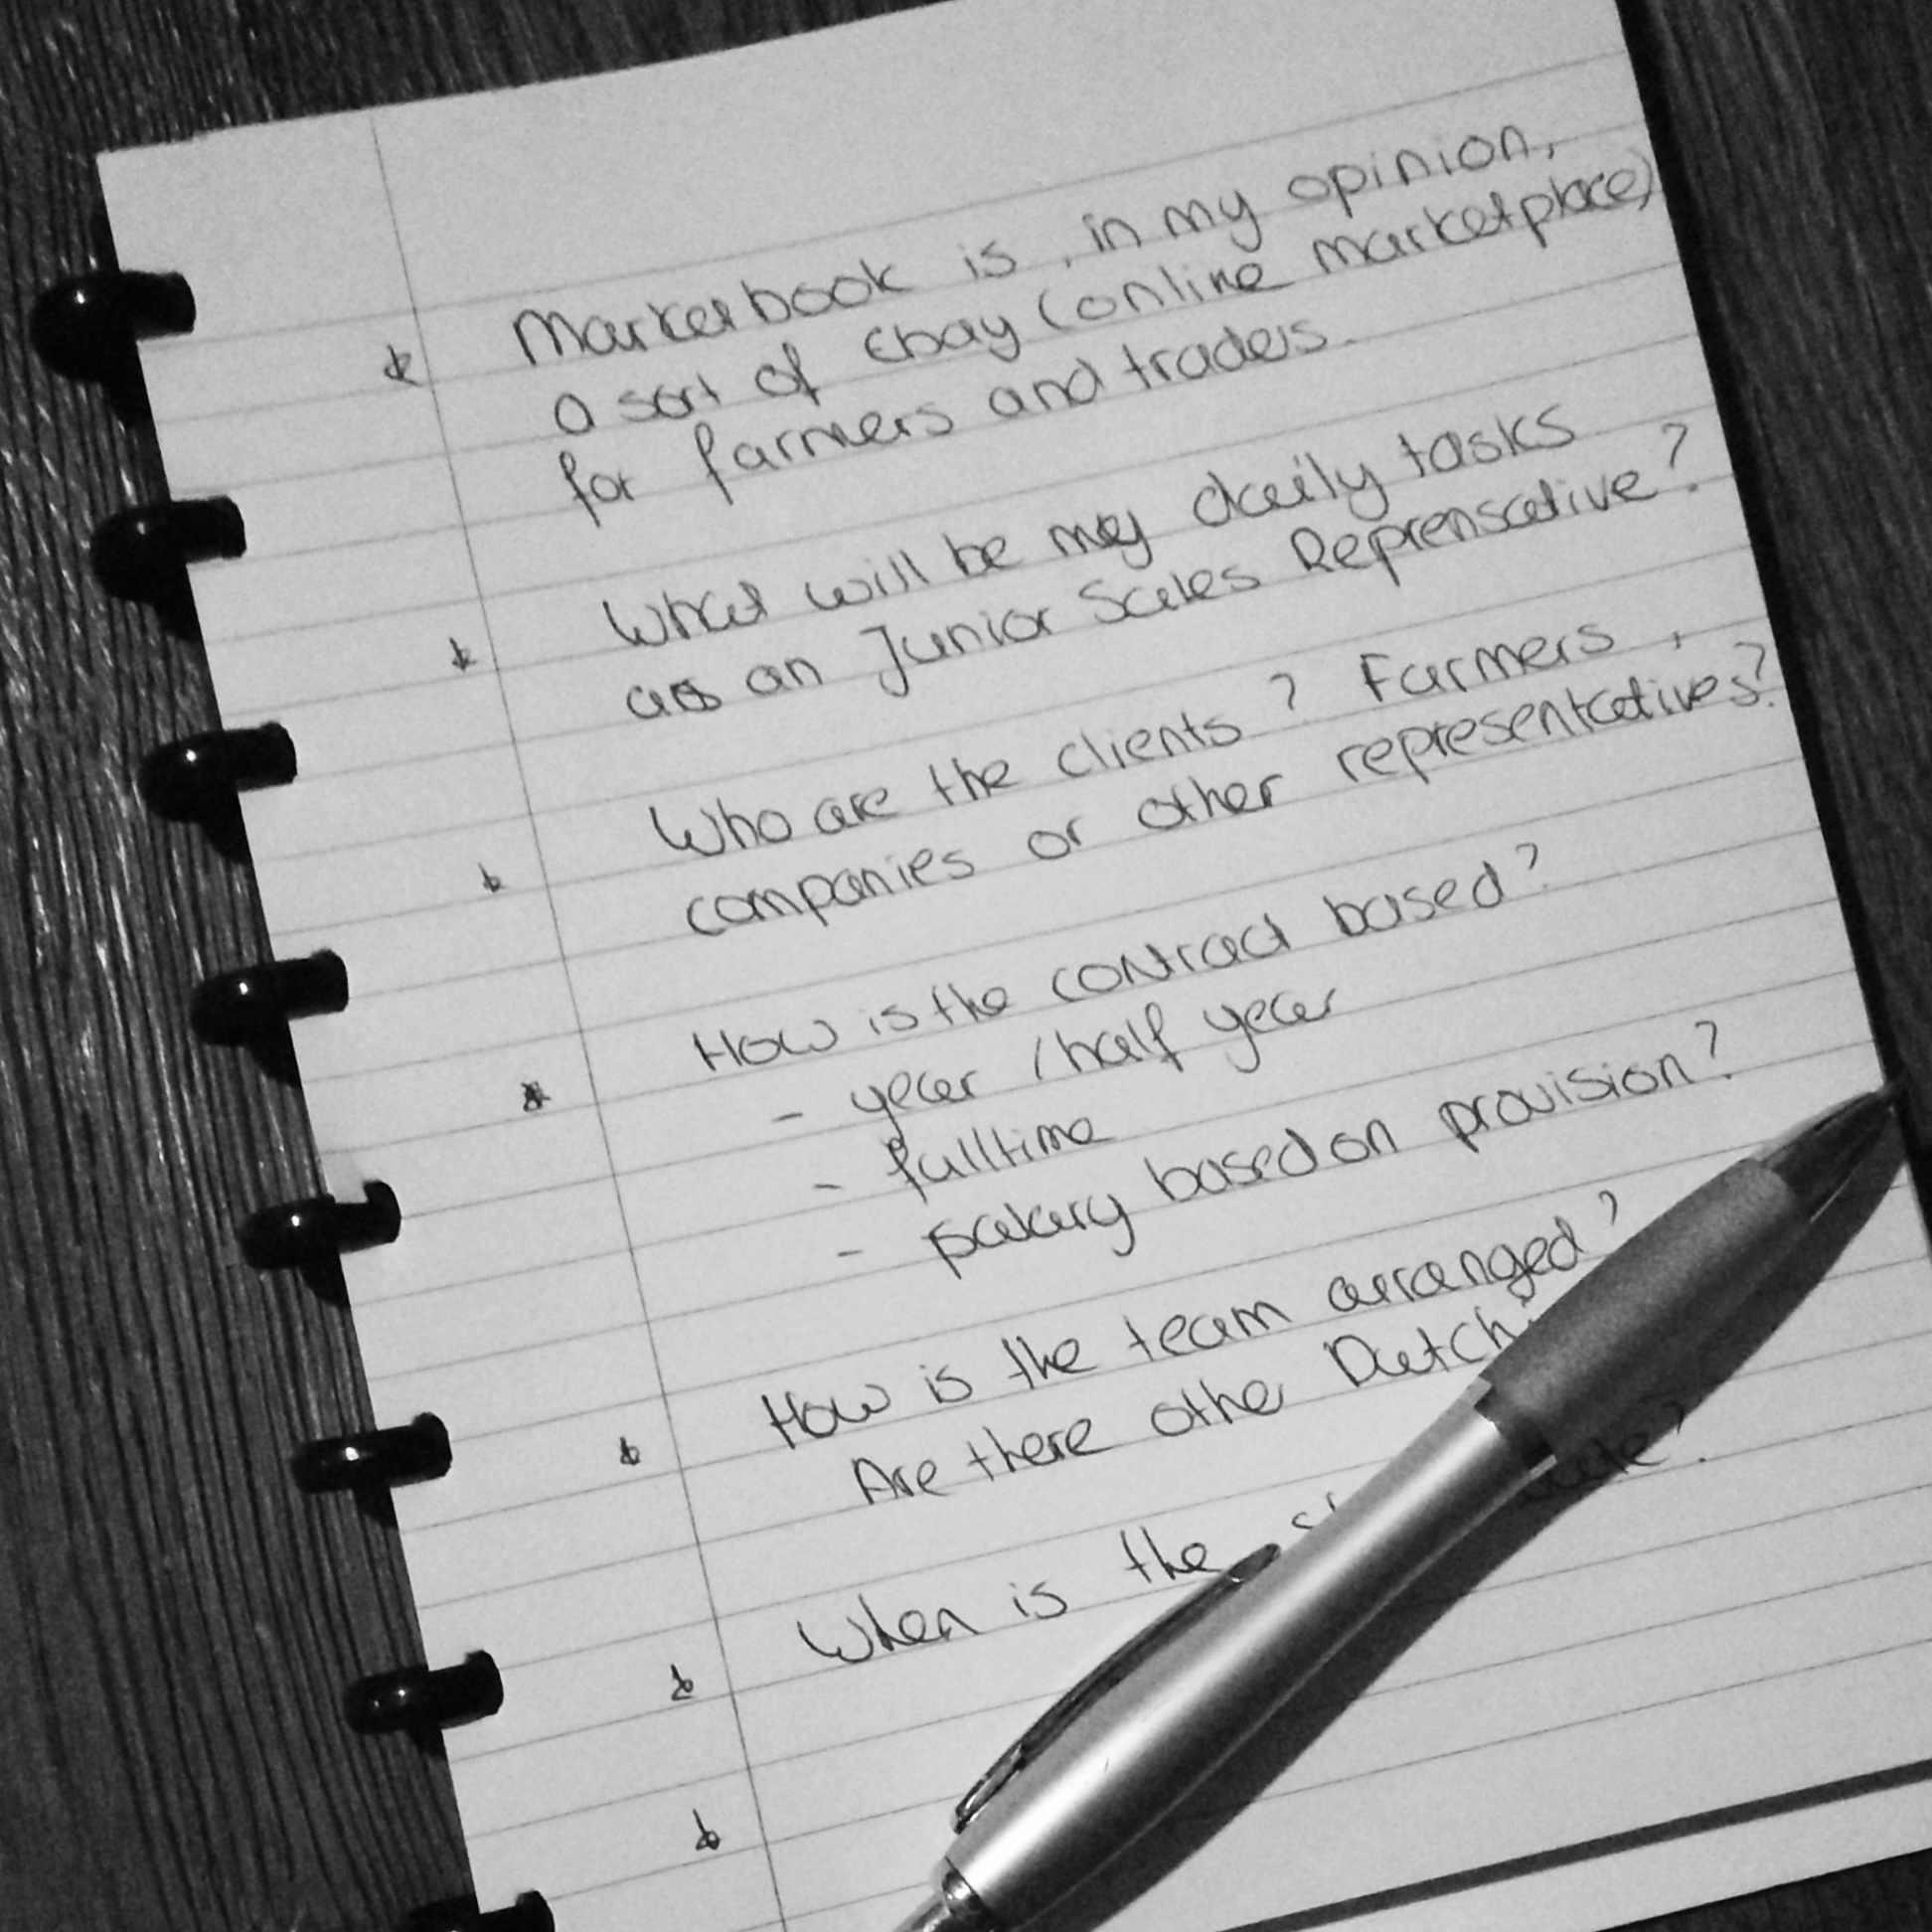 * Marketbook is, in my opinion,
a sort of Ebay (online marketplace)
for farmers and traders.
* What will be my daily tasks
as an Junior Sales Reprensative?
* Who are the clients? Farmers,
companies or other representatives?
* How is the contract based?
- year / half year
- fulltime
- salary based on provision?
* How is the team arranged?
Are there other Dutch
* When is the
*